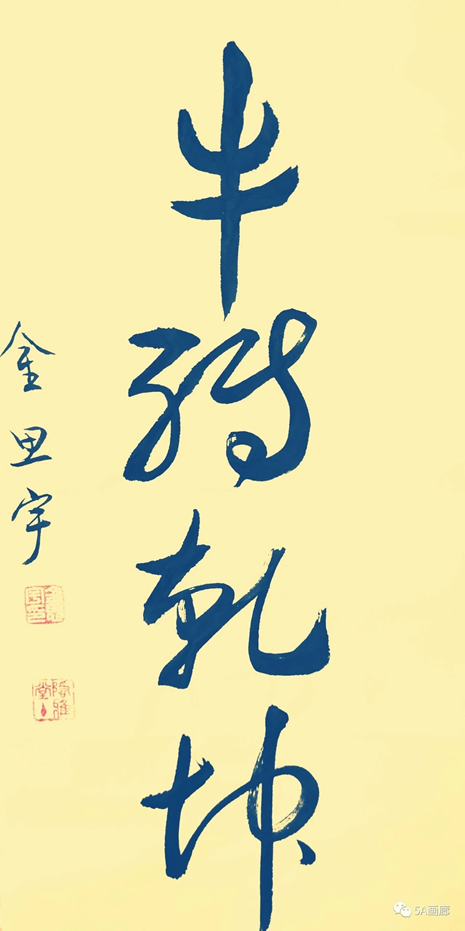 牛转乾坤
金思宇
5A画廊